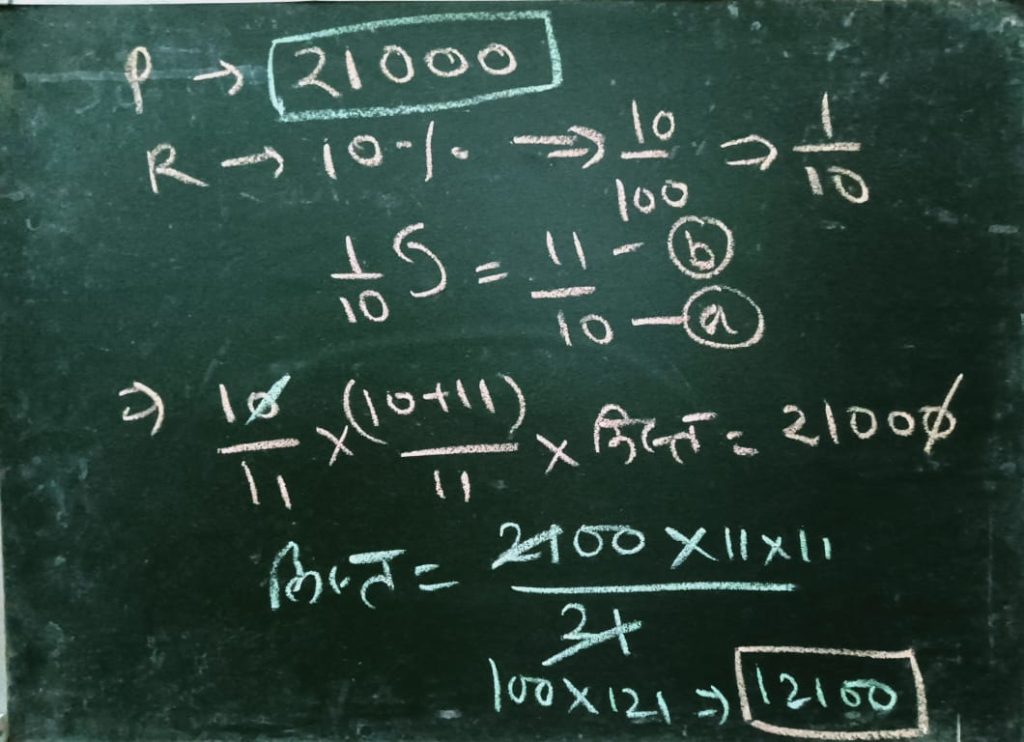 P → 21000
R → 10% ⇒ 10/100 ⇒ 1/10
1/10 S = 11/10 - b - a
⇒ 10/11 × (10+11)/11 × किस्त = 21000
किस्त = 2100 × 11 × 11 / 21
100 × 121 ⇒ 12100